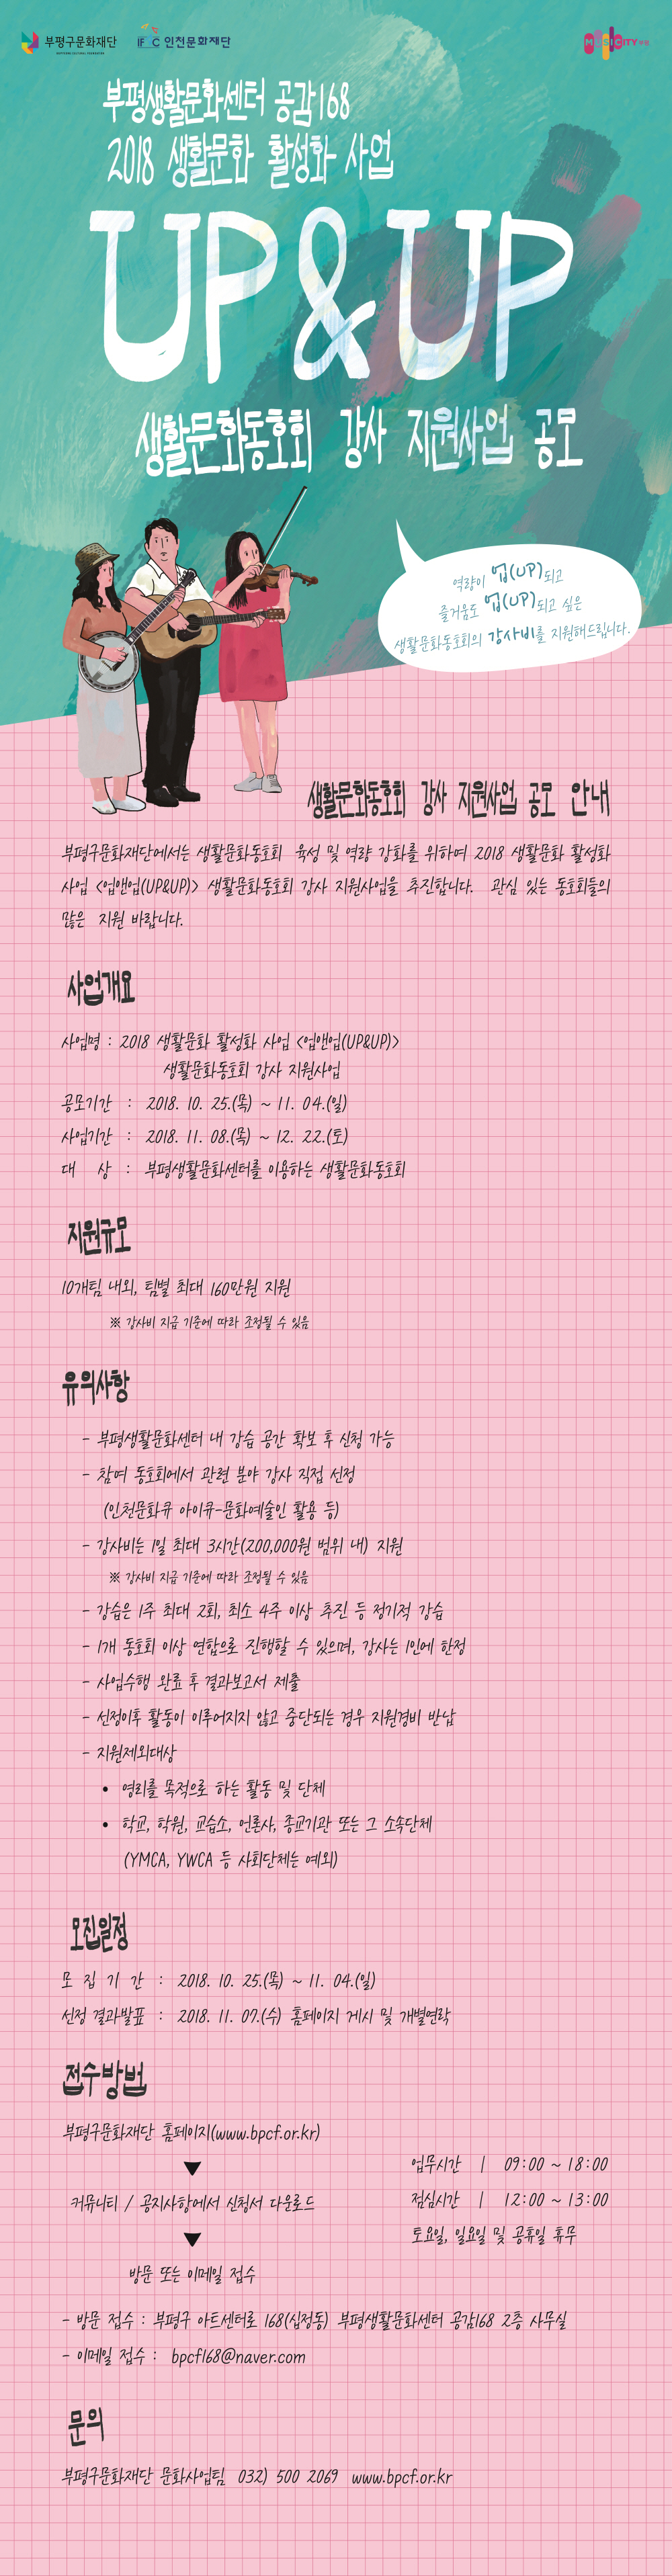 부평구문화재단
인천문화재단
MUSICITY부평
부평생활문화센터 공감168
2018 생활문화 활성화 사업
UP&UP
생활문화동호회 강사 지원사업 공모
역량이 업(UP)되고
즐거움도 업(UP)되고 싶은
생활문화동호회의 강사비를 지원해드립니다.
생활문화동호회 강사 지원사업 공모 안내
부평구문화재단에서는 생활문화동호회 육성 및 역량 강화를 위하여 2018 생활문화 활성화
사업 <업앤업(UP&UP)> 생활문화동호회 강사 지원사업을 추진합니다. 관심 있는 동호회들의
많은 지원 바랍니다.
사업개요
사업명 : 2018 생활문화 활성화 사업 <업앤업(UP&UP)>
생활문화동호회 강사 지원사업
공모기간 : 2018. 10. 25.(목) ~ 11. 04.(일)
사업기간 : 2018. 11. 08.(목) ~ 12. 22.(토)
대 상 : 부평생활문화센터를 이용하는 생활문화동호회
지원규모
10개팀 내외, 팀별 최대 160만원 지원
※ 강사비 지급 기준에 따라 조정될 수 있음
유의사항
- 부평생활문화센터 내 강습 공간 확보 후 신청 가능
- 참여 동호회에서 관련 분야 강사 직접 선정
(인천문화큐 아이큐-문화예술인 활용 등)
- 강사비는 1일 최대 3시간(200,000원 범위 내) 지원
※ 강사비 지급 기준에 따라 조정될 수 있음
- 강습은 1주 최대 2회, 최소 4주 이상 추진 등 정기적 강습
- 1개 동호회 이상 연합으로 진행할 수 있으며, 강사는 1인에 한정
- 사업수행 완료 후 결과보고서 제출
- 선정이후 활동이 이루어지지 않고 중단되는 경우 지원경비 반납
- 지원제외대상
• 영리를 목적으로 하는 활동 및 단체
• 학교, 학원, 교습소, 언론사, 종교기관 또는 그 소속단체
(YMCA, YWCA 등 사회단체는 예외)
모집일정
모 집 기 간 : 2018. 10. 25.(목) ~ 11. 04.(일)
선정 결과발표 : 2018. 11. 07.(수) 홈페이지 게시 및 개별연락
접수방법
부평구문화재단 홈페이지(www.bpcf.or.kr)
▼
커뮤니티 / 공지사항에서 신청서 다운로드
▼
방문 또는 이메일 접수
업무시간 | 09:00 ~ 18:00
점심시간 | 12:00 ~ 13:00
토요일, 일요일 및 공휴일 휴무
- 방문 접수 : 부평구 아트센터로 168(십정동) 부평생활문화센터 공감168 2층 사무실
- 이메일 접수 : bpcf168@naver.com
문의
부평구문화재단 문화사업팀 032) 500 2069 www.bpcf.or.kr